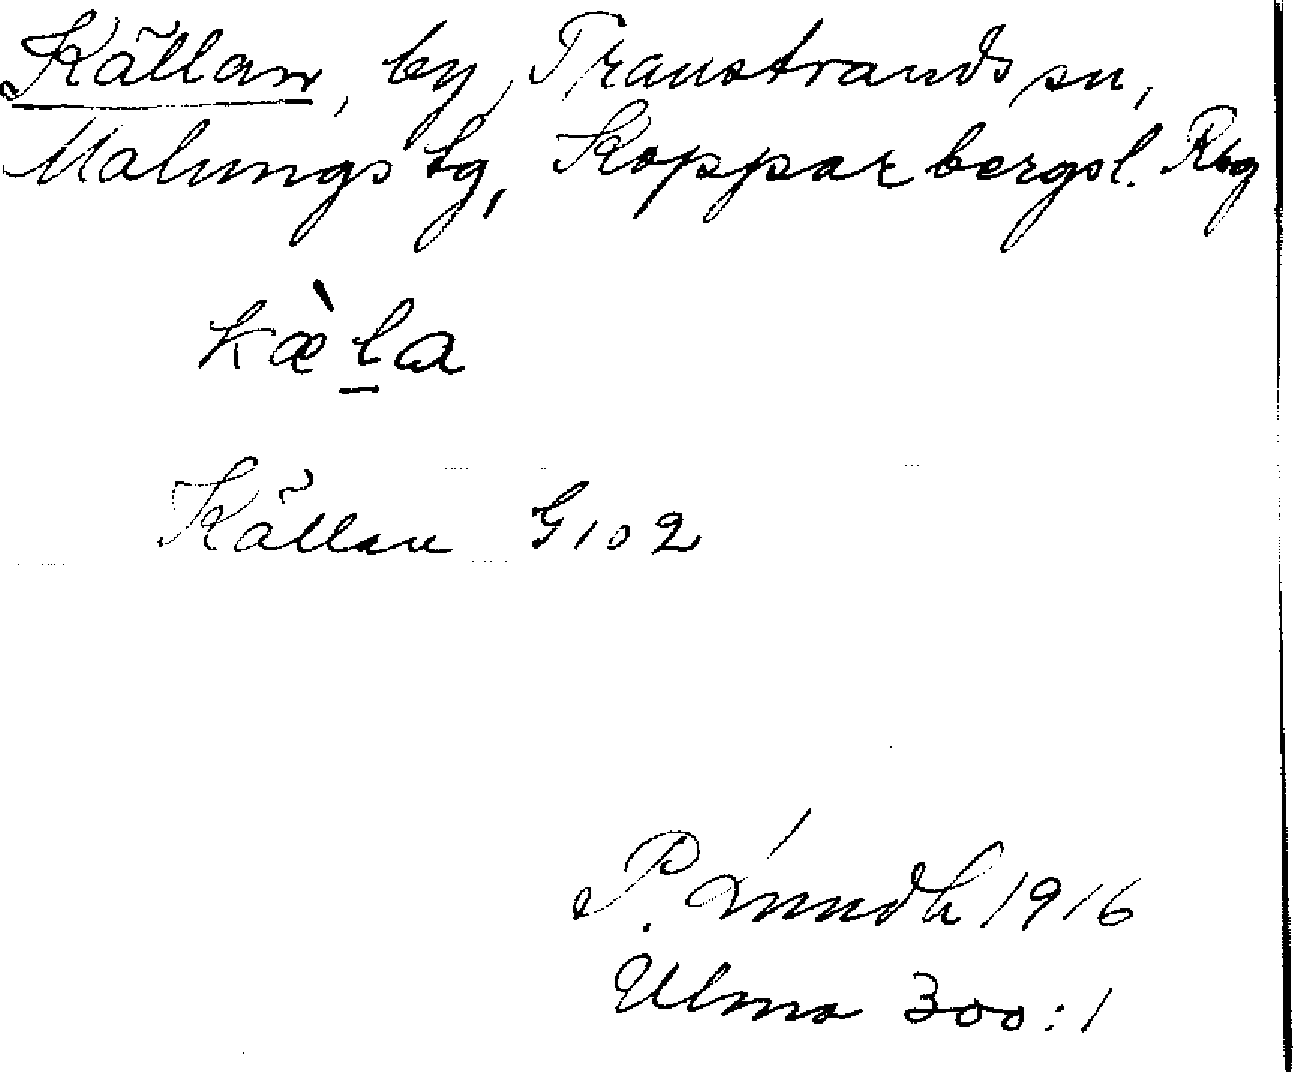 Källan, by, Transtrands sn,
Malungs tg, Kopparbergs l. Rbg
kæ̀l̠a
Källan G 102
P. Lundh 1916
Ulma 300:1